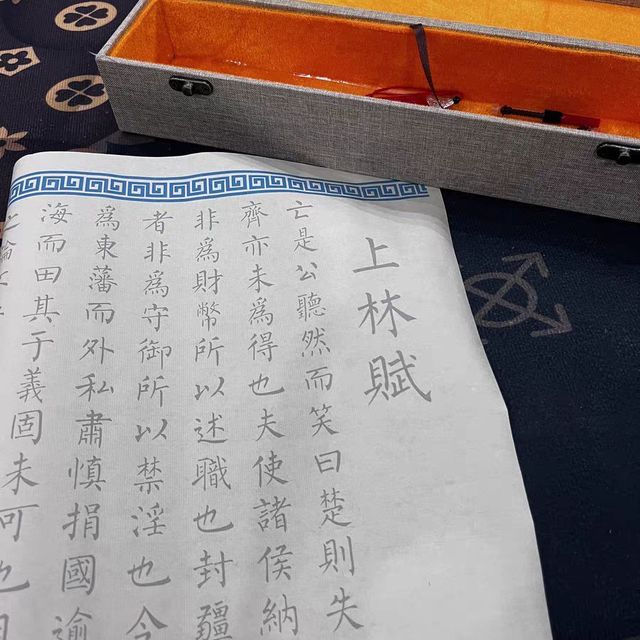 上林賦
亡是公聽然而笑曰楚則失
齊亦未爲得也夫使諸侯納
非爲財幣所以述職也封疆
者非爲守御所以禁淫也今
爲東藩而外私肅慎捐國逾
海而田其于義固未可也